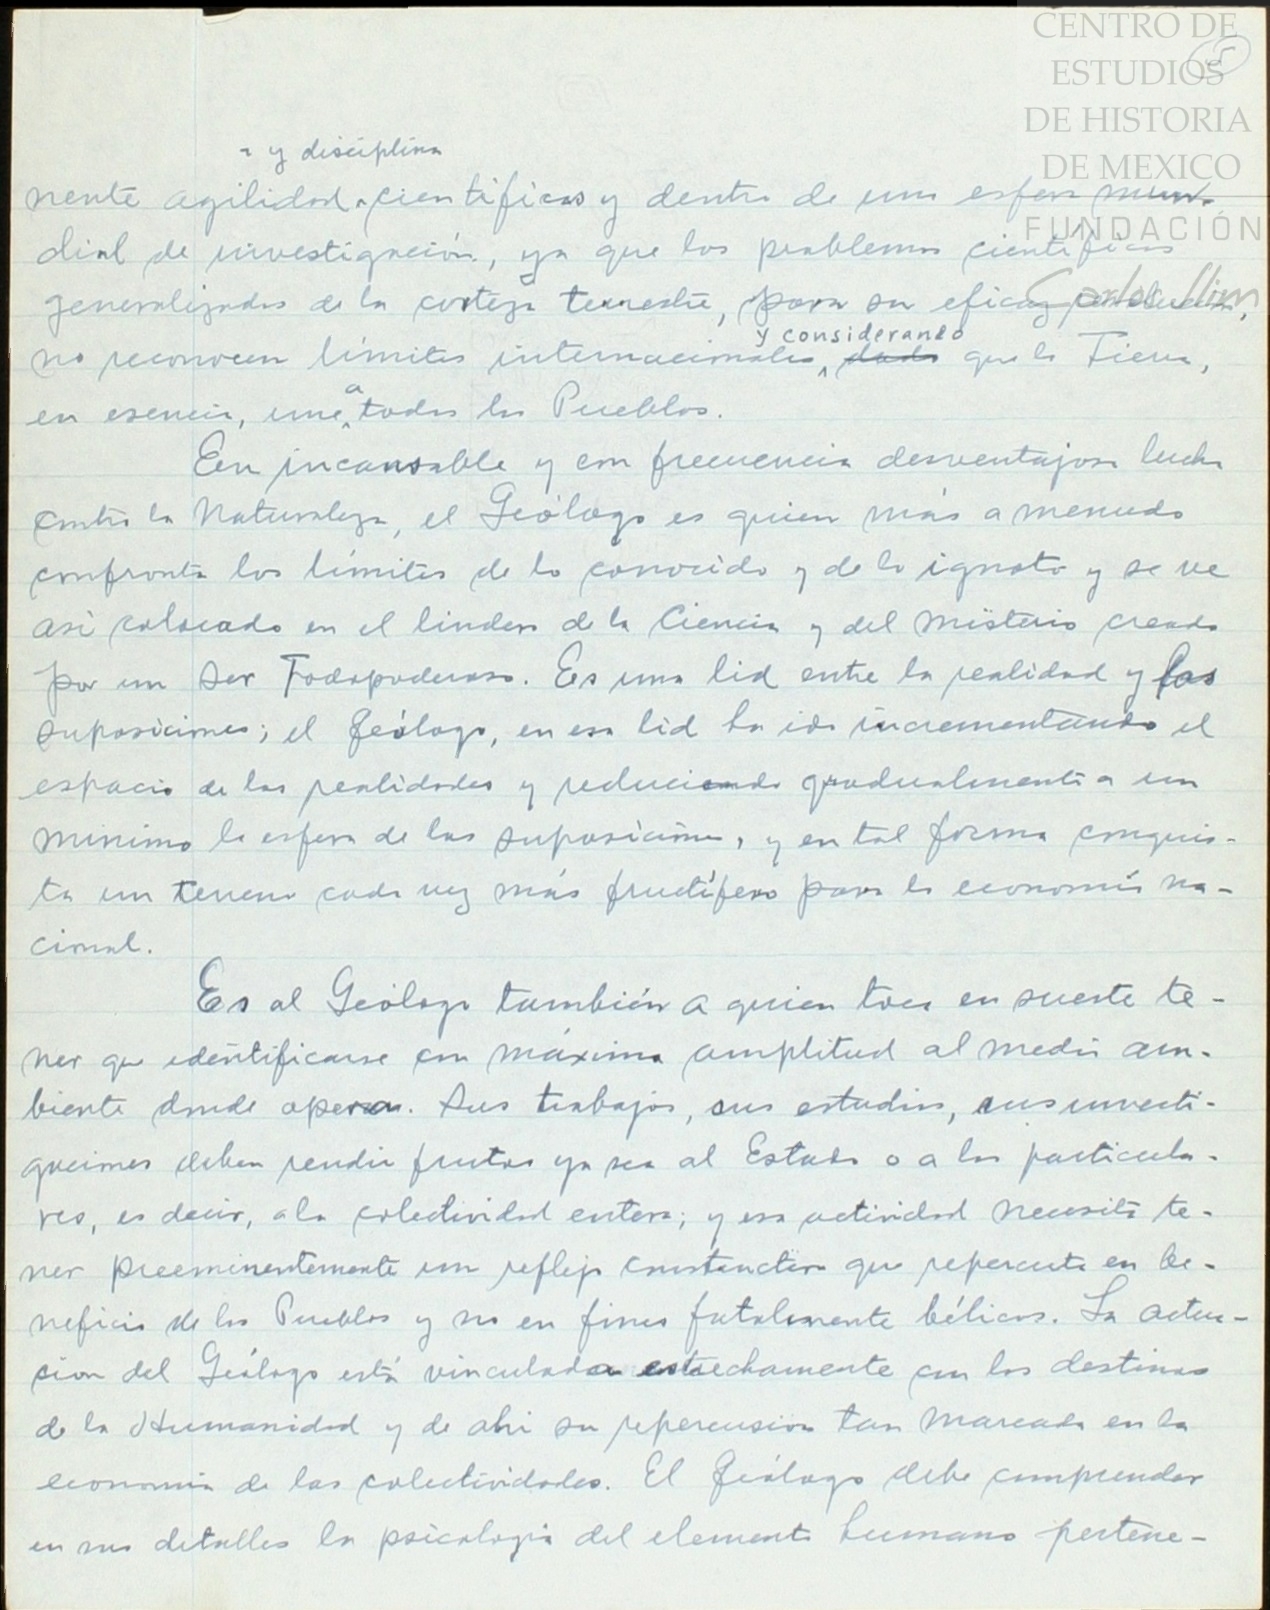 CENTRO DE
ESTUDIOS
DE HISTORIA
DE MEXICO
FUNDACIÓN
Carlos Slim
5
y disciplina
nente agilidad científicas y dentro de una esfera mun-
dial de investigación, ya que los problemas científicos
generalizados de la corteza terrestre, para su eficaz resolución,
y considerando
no reconocen límites internacionales, dado que la Tierra,
a
en esencia, une todos los Pueblos.
En incansable y con frecuencia desventajosa lucha
contra la Naturaleza, el Geólogo es quien más a menudo
confronta los límites de lo conocido y de lo ignoto y se ve
así colocado en el lindero de la Ciencia y del misterio creado
por un Ser Todopoderoso. Es una lid entre la realidad y las
suposiciones; el geólogo, en esa lid ha ido incrementando el
espacio de las realidades y reduciendo gradualmente a un
mínimo la esfera de las suposiciones, y en tal forma conquis-
ta un terreno cada vez más fructífero para la economía na-
cional.
Es al Geólogo también a quien toca en suerte te-
ner que identificarse con máxima amplitud al medio am-
biente donde opera. Sus trabajos, sus estudios, sus investi-
gaciones deben rendir frutos ya sea al Estado o a los particula-
res, es decir, a la colectividad entera; y esa actividad necesita te-
ner preeminentemente un reflejo constructivo que repercuta en be-
neficio de los Pueblos y no en fines fatalmente bélicos. La actua-
ción del Geólogo está vinculada estrechamente con los destinos
de la Humanidad y de ahí su repercusión tan marcada en la
economía de las colectividades. El geólogo debe comprender
en sus detalles la psicología del elemento humano pertene-